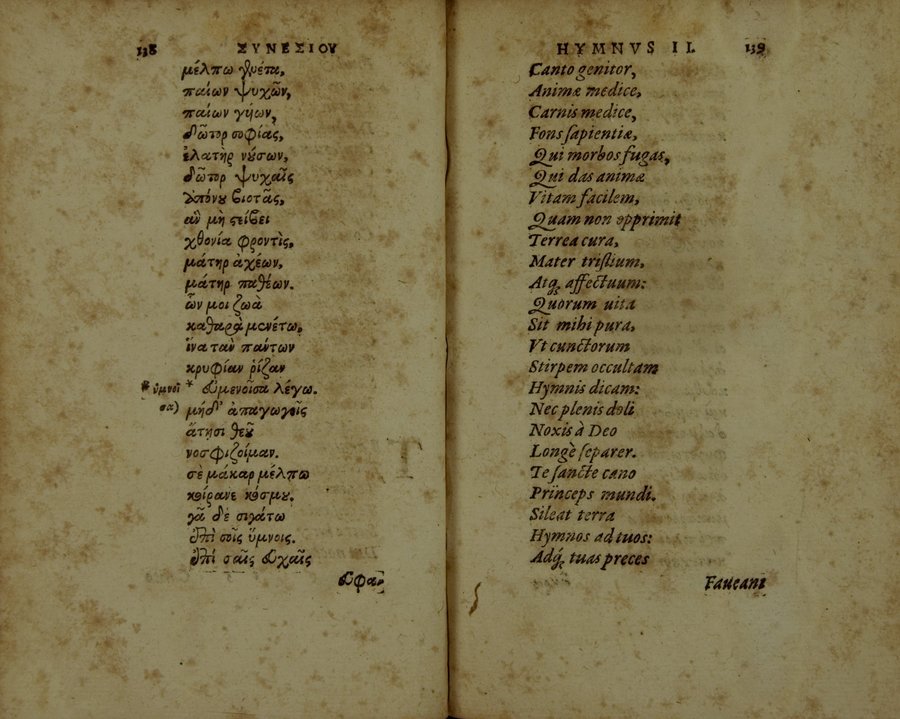 138 ΣΥΝΕΣΙΟΥ
μέλπω γενέτα,
παίων ψυχῶν,
παίων γήων,
δῶτορ σοφίας,
ἐλατὴρ νόσων,
δῶτορ ψυχαῖς
ἀπόνου βιοτᾶς,
ἃν μὴ στείβει
χθονία φροντὶς,
μάτηρ ἀχέων,
μάτηρ παθέων.
ὧν μοι ζωὰ
καθαρὰ μενέτω,
ἵνα τὰν πάντων
κρυφίαν ῥίζαν
* ὑμνοῖ * εὐμενοῖσα λέγω.
σα) μηδ' ἀπαγωγοῖς
ἄτῃσι θεοῦ
νοσφιζοίμαν.
σὲ μάκαρ μέλπω
κοίρανε κόσμου.
γᾶ δὲ σιγάτω
ἐπὶ σοῖς ὕμνοις.
ἐπὶ σαῖς εὐχαῖς
εὐφα-
HYMNVS II. 139
Canto genitor,
Animæ medice,
Carnis medice,
Fons sapientiæ,
Qui morbos fugas,
Qui das animæ
Vitam facilem,
Quam non opprimit
Terrea cura,
Mater tristium,
Atq; affectuum:
Quorum uita
Sit mihi pura,
Vt cunctorum
Stirpem occultam
Hymnis dicam:
Nec plenis doli
Noxis à Deo
Longè separer.
Te sancte cano
Princeps mundi.
Sileat terra
Hymnos ad tuos:
Adq; tuas preces
Faueant